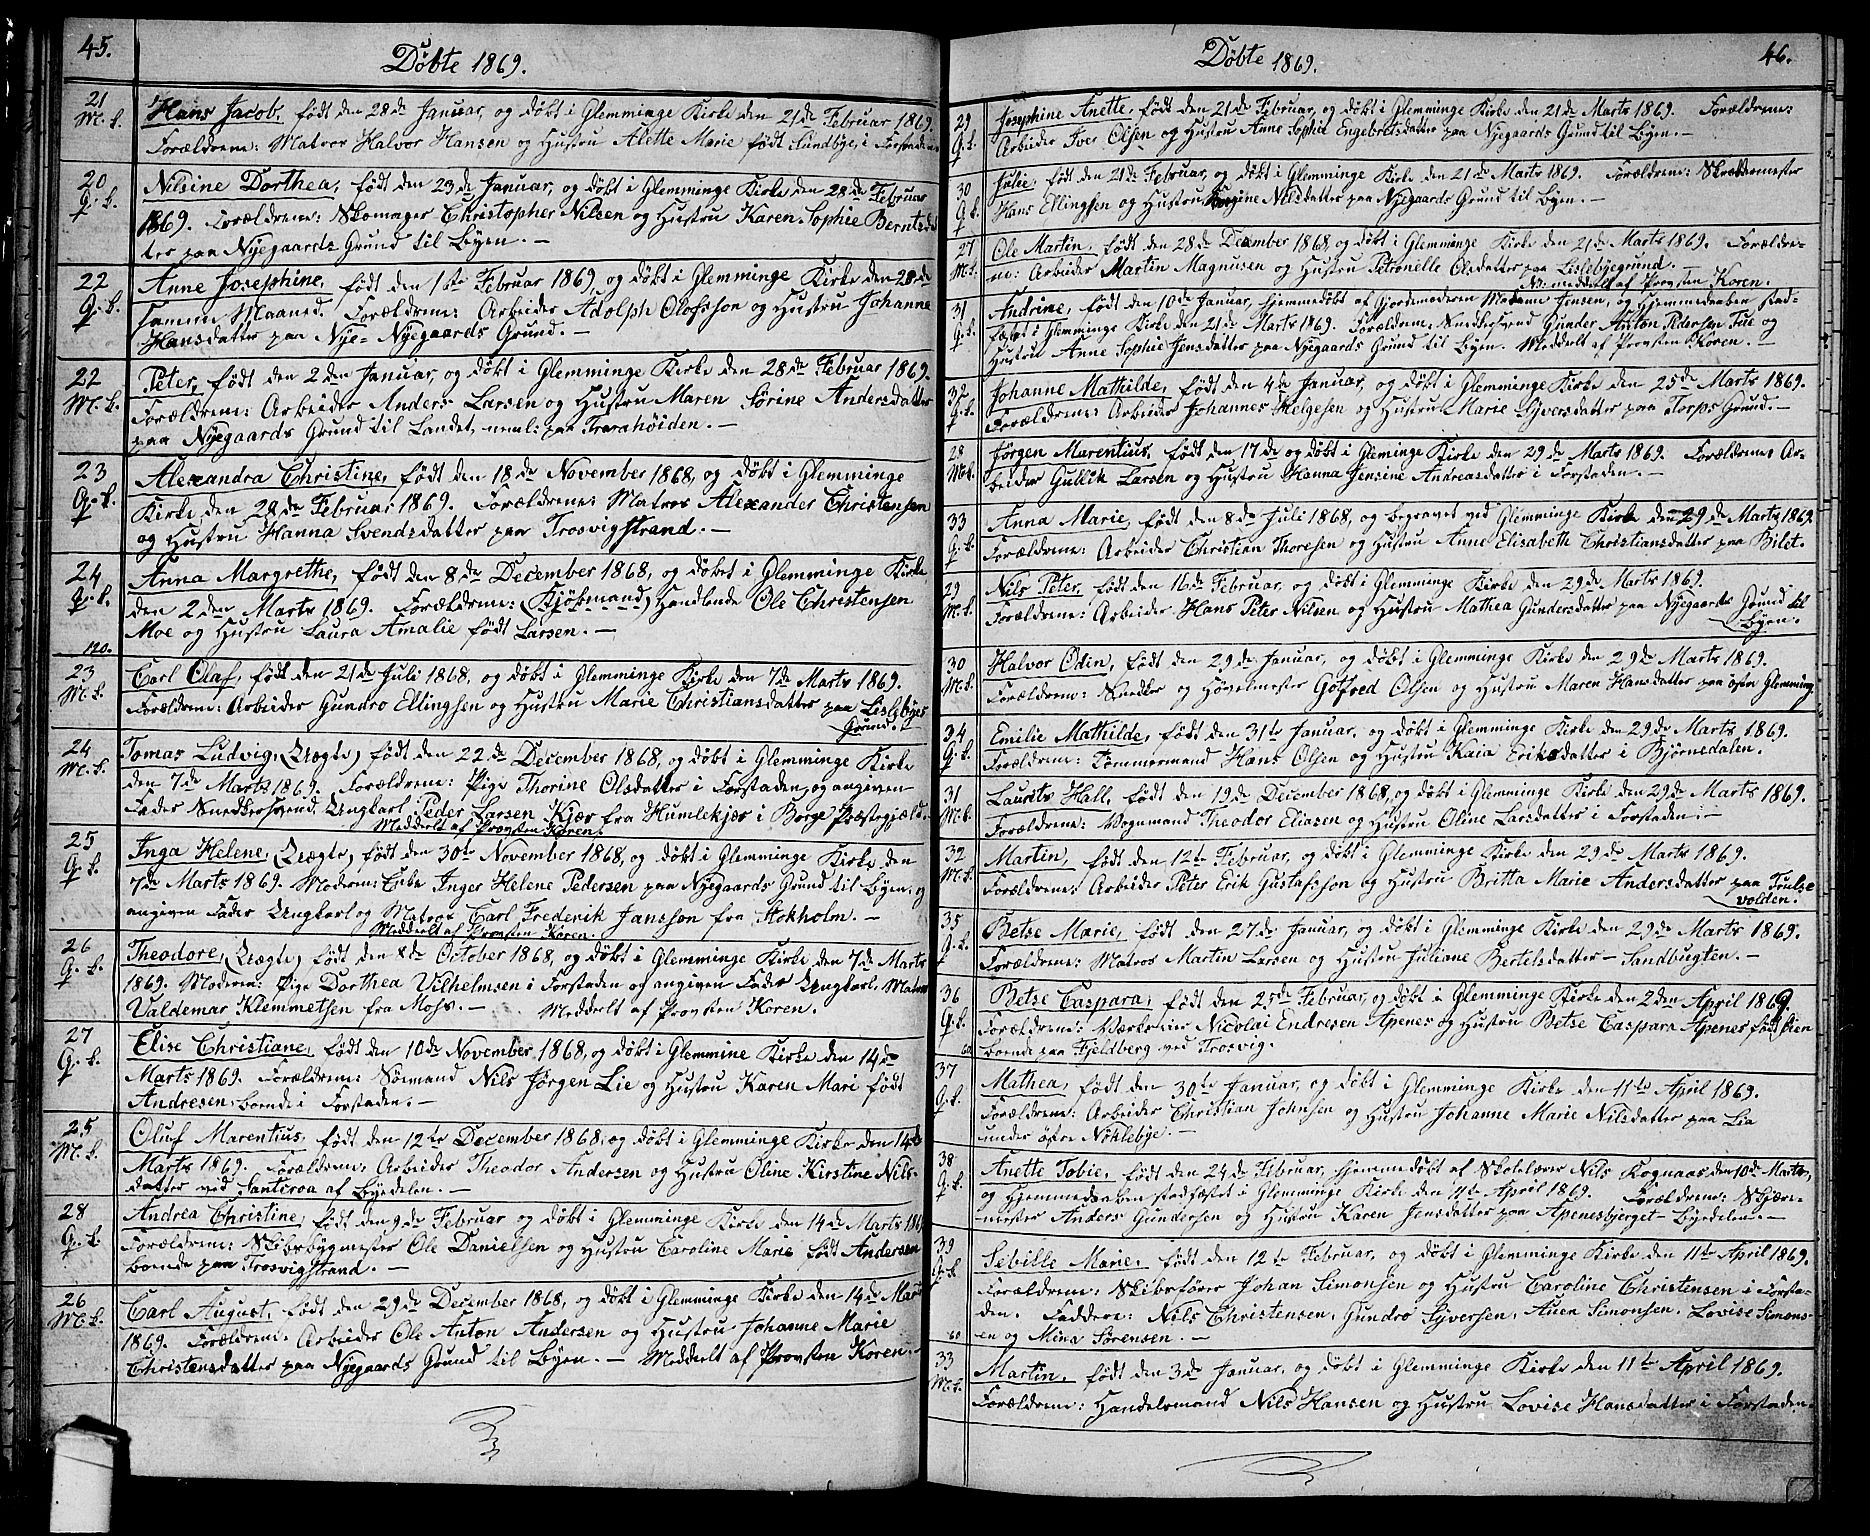 45.
Döbte 1869.
21
M. k.
Hans Jacob, födt den 28de Januar, og döbt i Glemminge Kirke den 21de Februar 1869
Forældrene: Matros Halvor Hansen og Hustru Alette Marie födt Sundbye, i Forstaden
20
Q. k.
Nilsine Dorthea, födt den 23de Januar, og döbt i Glemminge Kirke den 28de Februar
1869. Forældrene: Skomager Christopher Nilsen og Hustru Karen Sophie Berntsdat
ter paa Nyegaards Grund til Byen. —
22
Q. k.
Anne Josephine, födt den 1ste Februar 1869, og döbt i Glemminge Kirke den 28de
samme Maaned. Forældrene: Arbeider Adolph Olofsson og Hustru Johanne
Hansdatter paa Nye- Nyegaards Grund. —
22
M. k.
Peter, födt den 2den Januar, og döbt i Glemminge Kirke den 28de Februar 1869.
Forældrene: Arbeider Anders Larsen og Hustru Maren Sörine Andersdatter
paa Nyegaards Grund til Landet, neml: paa Trarahöiden. —
23
Q. k.
Alexandra Christine, födt den 18de November 1868, og döbt i Glemminge
Kirke den 28de Februar 1869. Forældrene: Matros Alexander Christensen
og Hustru Hanna Svendsdatter paa Trosvigstrand. —
24
Q. k.
Anna Margrethe, födt den 8de December 1868, og döbt i Glemminge Kirke
den 2den Marts 1869. Forældrene: (Kjöbmand) Handlende Ole Christensen
Moe og Hustru Laura Amalie födt Larsen. —
120.
23
M. k.
Carl Olaf, födt den 21de Juli 1868, og döbt i Glemminge Kirke den 7de Marts 1869.
Forældrene: Arbeider Gundro Ellingsen og Hustru Marie Christiansdatter paa Lislebyes
Grund. —
24
M. k.
Tomas Ludvig, (Uægte) födt den 22de December 1868, og döbt i Glemminge Kirke
den 7de Marts 1869. Forældrene: Pige Thorine Olsdatter i Forstaden, og angiven
Fader Snedkersvend Ungkarl Peder Larsen Kjær fra Humlekjær i Borge Præstegjæld.
Meddelt af Provsten Koren.
25
Q. k.
Inga Helene, (Uægte) födt den 30te November 1868, og döbt i Glemminge Kirke den
7de Marts 1869. Moderen: Enke Inger Helene Pedersen paa Nyegaards Grund til Byen; og
angiven Fader Ungkarl og Matros Carl Frederik Jansson fra Stokholm. —
Meddelt af Provsten Koren.
26
Q. k.
Theodore, (Uægte) födt den 8de October 1868, og döbt i Glemminge Kirke den 7de Marts
1869. Moderen: Pige Dorthea Vilhelmsen i Forstaden og angiven Fader Ungkarl Matros
Valdemar Klemmetsen fra Moss. — Meddelt af Provsten Koren.
27
Q. k.
Elise Christiane, födt den 10de November 1868, og döbt i Glemmine Kirke den 14de
Marts 1869. Forældrene: Sömand Nils Jörgen Lie og Hustru Karen Mari födt
Andresen, boende i Forstaden. —
25
M. k.
Oluf Marentius, födt den 12te December 1868, og döbt i Glemminge Kirke den 14de
Marts 1869. Forældrene: Arbeider Theodor Andersen og Hustru Oline Kirstine Nils-
datter ved Santeroa af Byedelen. —
28
Q. k.
Andrea Christine, födt den 9de Februar og döbt i Glemminge Kirke den 14de Marts 1869
Forældrene: Skibsbygmester Ole Danielsen og Hustru Caroline Marie födt Andersen
boende paa Trosvigstrand. —
26
M. k.
Carl August, födt den 29de December 1868, og döbt i Glemminge Kirke den 14de Marts
1869. Forældrene: Arbeider Ole Anton Andersen og Hustru Johanne Marie
Christensdatter paa Nyegaards Grund til Byen. — Meddelt af Provsten Koren. —
46.
Döbte 1869.
29
Q. k.
Josephine Anette, födt den 21de Februar, og döbt i Glemminge Kirke den 21de Marts 1869. Forældrene:
Arbeider Iver Olsen og Hustru Anne Sophie Engebretsdatter paa Nyegaards Grund til Byen. —
30
Q. k.
Julie, födt den 21de Februar, og döbt i Glemminge Kirke den 21de Marts 1869. Forældrene: Skræddermester
Hans Ellingsen og Hustru Regine Nilsdatter paa Nyegaards Grund til Byen. —
27
M. k.
Ole Martin, födt den 28de December 1868, og döbt i Glemminge Kirke den 21de Marts 1869. Forældre-
ne: Arbeider Martin Magnusen og Hustru Petronelle Olsdatter paa Lislebyegrund.
No: meddelt af Provsten Koren.
31
Q. k.
Andrine, födt den 10de Januar, hjemmedöbt af Gjordemoderen Madame Jensen, og Hjemmedaaben stad-
fæstet i Glemminge Kirke den 21de Marts 1869. Forældrene: Snedkersvend Gunder Anton Pedersen Tue og
Hustru Anne Sophie Jensdatter paa Nyegaards Grund til Byen. Meddelt af Provsten Koren. —
32
Q. k.
Johanne Mathilde, födt den 4de Januar, og döbt i Glemminge Kirke den 25de Marts 1869.
Forældrene: Arbeider Johannes Helgesen og Hustru Marie Syversdatter paa Torps Grund. —
28
M. k.
Jörgen Marentius, födt den 17de og döbt i Gleminge Kirke den 29de Marts 1869. Forældrene: Ar-
beider Gullik Larsen og Hustru Hanna Jensine Andreasdatter i Forstaden. —
33
Q. k.
Anna Marie, födt den 8de Juli 1868, og begravet ved Glemminge Kirke den 29de Marts 1869
Forældrene: Arbeider Christian Thoresen og Hustru Anne Elisabeth Christiansdatter paa Bilet.
29
M. k.
Nils Peter, födt den 16de Februar, og döbt i Glemminge Kirke den 29de Marts 1869.
Forældrene: Arbeider Hans Peter Nilsen og Hustru Mathea Gundersdatter paa Nyegaards Grund til
Byen. —
30
M. k.
Halvor Odin, födt den 29de Januar, og döbt i Glemminge Kirke den 29de Marts 1869.
Forældrene: Snedker og Hövelmester Gotfred Olsen og Hustru Maren Hansdatter paa östre Glemming
34
Q. k.
Emilie Mathilde, födt den 31te Januar, og döbt i Glemminge Kirke den 29de Marts 1869.
Forældrene: Tömmermand Hans Olsen og Hustru Kaia Eriksdatter i Björnedalen.
31
M. k.
Laurits Hall, födt den 19de December 1868, og döbt i Glemminge Kirke den 29de Marts 1869.
Forældrene: Vognmand Theodor Eliasen og Hustru Oline Larsdatter i Forstaden: —
32
M. k.
Martin, födt den 12te Februar, og döbt i Glemminge Kirke den 29de Marts 1869.
Forældrene: Arbeider Peter Erik Gustafsson og Hustru Britta Marie Andersdatter paa Trulse
volden. —
35
Q. k.
Betse Marie, födt den 27de Januar, og döbt i Glemminge Kirke den 29de Marts 1869.
Forældrene: Matros Martin Larsen og Hustru Juliane Bertilsdatter — Sandbugten. —
36
Q. k.
60
Betse Caspara, födt den 25de Februar, og döbt i Glemminge Kirke den 2den April 1869.
Forældrene: Værkseier Nicolai Endresen Apenes og Hustru Betse Caspara Apenes födt Bien
boende paa Fjeldberg ved Trosvig.
37
Q. k.
Mathea, födt den 30te Januar, og döbt i Glemminge Kirke den 11te April 1869.
Forældrene: Arbeider Christian Johnsen og Hustru Johanne Marie Nilsdatter paa Lia
under östre Nöklebye. —
38
Q. k.
Anette Tobie, födt den 24de Februar, hjemmedöbt af Skolelærer Nils Rognaas den 10de Marts,
og Hjemmedaaben stadfæstet i Glemminge Kirke den 11te April 1869. Forældrene: Skjære-
mester Anders Gundersen og Hustru Karen Jensdatter paa Apenesbjerget — Byedelen. —
39
Q. k.
Sebille Marie, födt den 12te Februar, og döbt i Glemminge Kirke den 11te April 1869.
Forældrene: Skibsförer Johan Simonsen og Hustru Caroline Christensen i Forsta-
den. Faddere: Nils Christensen, Gundro Syversen, Auen Simonsen. Lovise Simons-
60
en og Mina Sörensen. —
33
M. k.
Martin, födt den 3de Januar, og döbt i Glemminge Kirke den 11te April 1869.
Forældrene: Handelsmand Nils Hansen og Hustru Lovise Hansdatter i Forstaden.